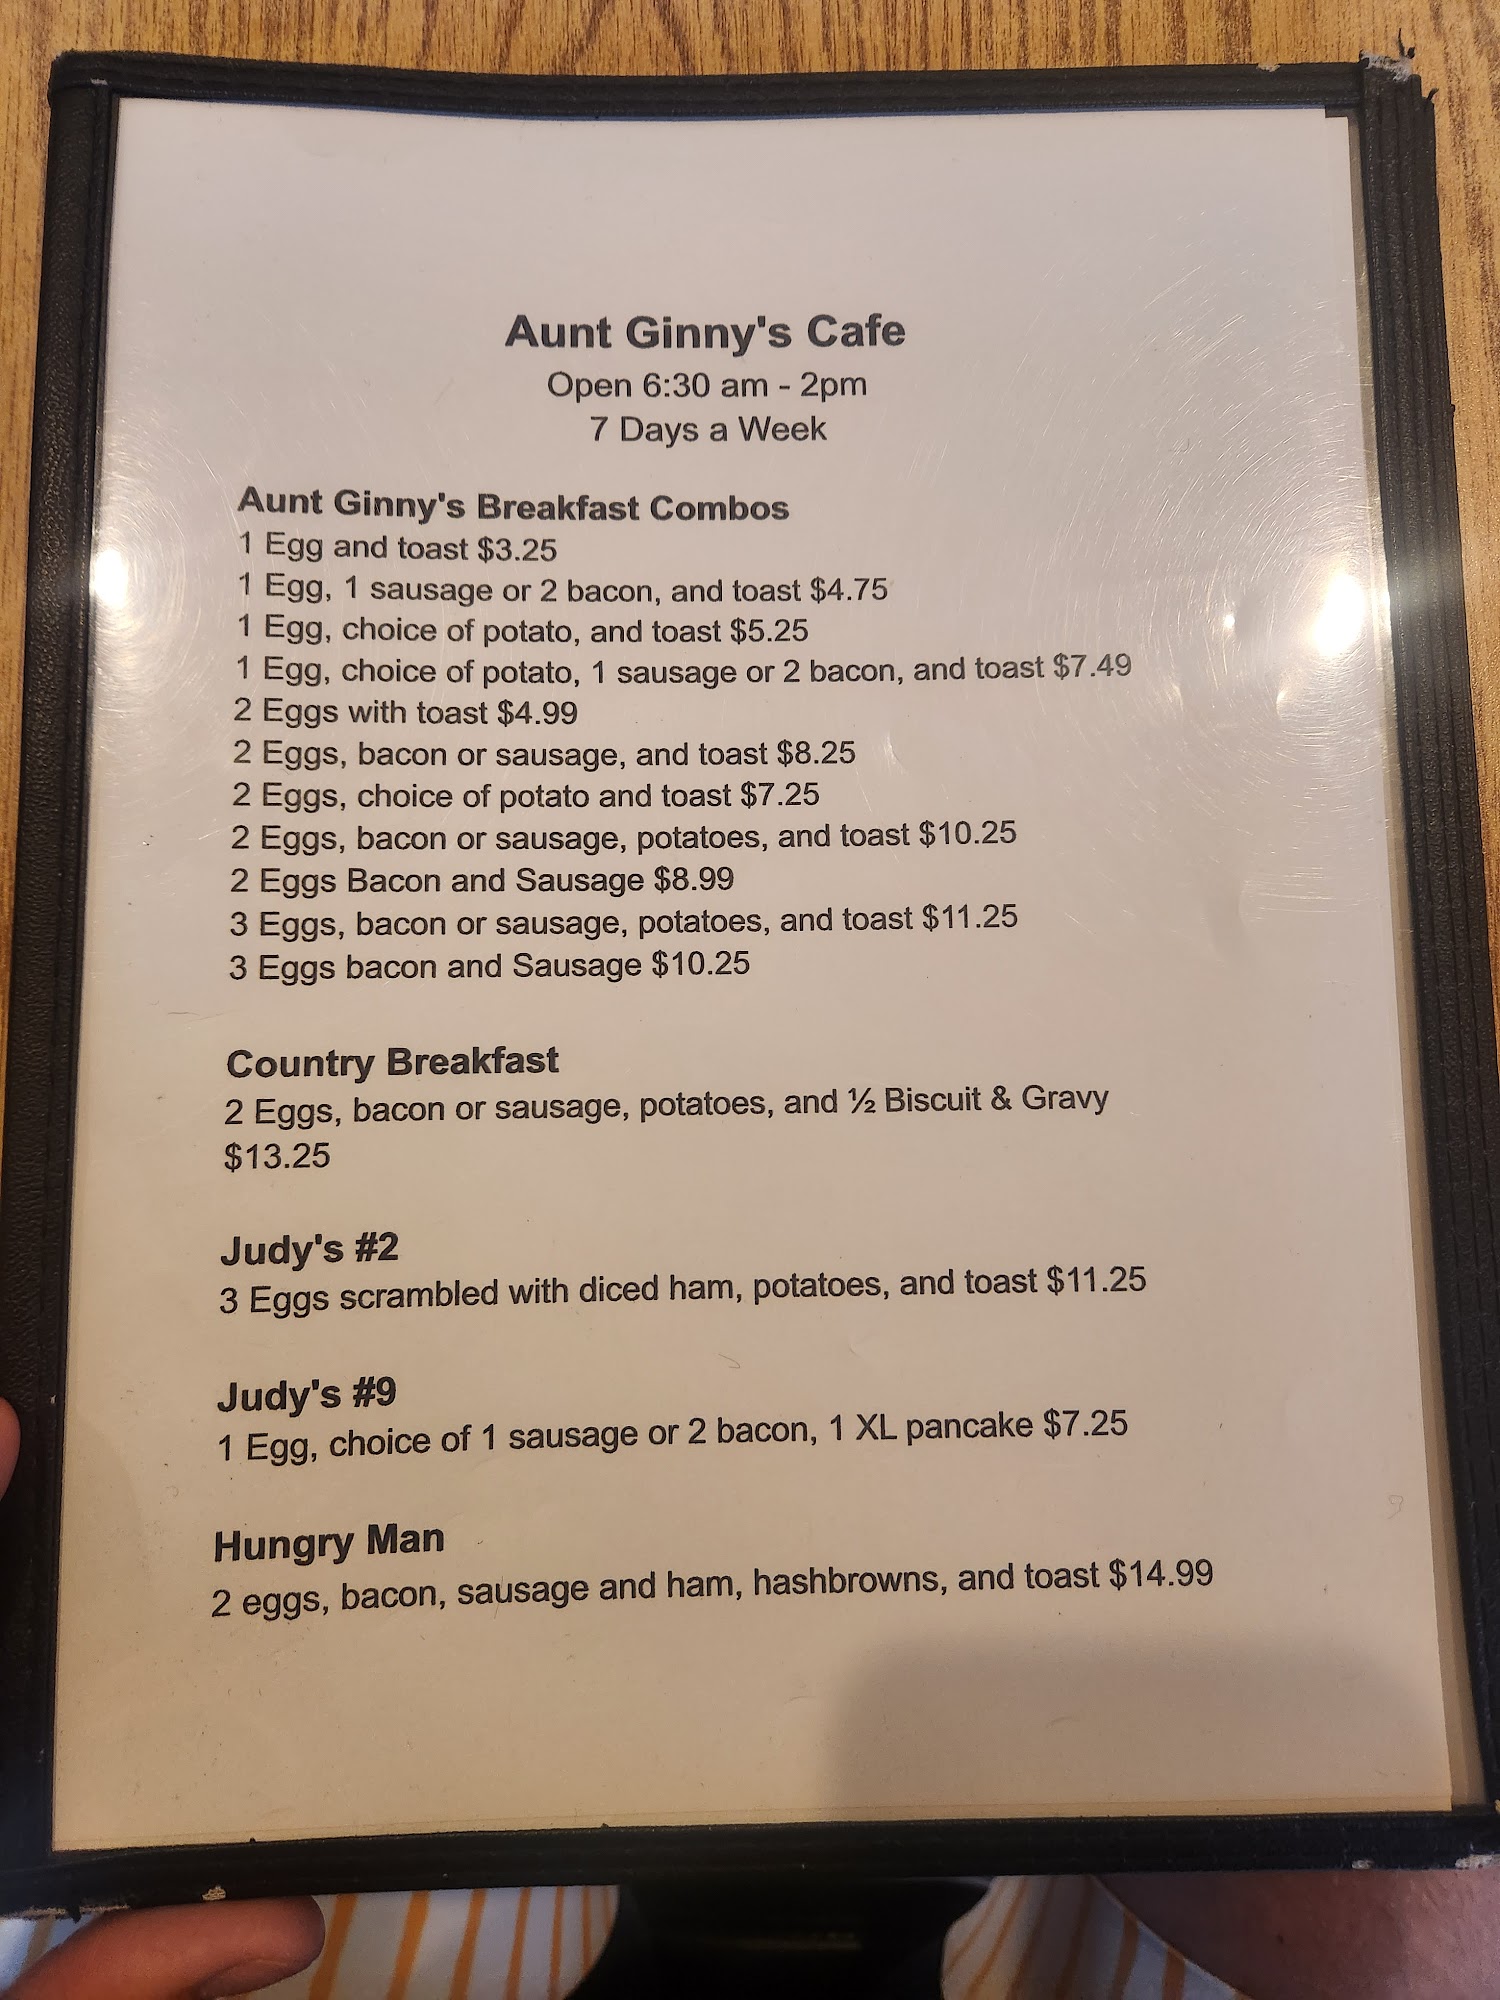 Aunt Ginny's Cafe
Open 6:30 am - 2pm
7 Days a Week
Aunt Ginny's Breakfast Combos
1 Egg and toast $3.25
1 Egg, 1 sausage or 2 bacon, and toast $4.75
1 Egg, choice of potato, and toast $5.25
1 Egg, choice of potato, 1 sausage or 2 bacon, and toast $7.49
2 Eggs with toast $4.99
2 Eggs, bacon or sausage, and toast $8.25
2 Eggs, choice of potato and toast $7.25
2 Eggs, bacon or sausage, potatoes, and toast $10.25
2 Eggs Bacon and Sausage $8.99
3 Eggs, bacon or sausage, potatoes, and toast $11.25
3 Eggs bacon and Sausage $10.25
Country Breakfast
2 Eggs, bacon or sausage, potatoes, and ½ Biscuit & Gravy
$13.25
Judy's #2
3 Eggs scrambled with diced ham, potatoes, and toast $11.25
Judy's #9
1 Egg, choice of 1 sausage or 2 bacon, 1 XL pancake $7.25
Hungry Man
2 eggs, bacon, sausage and ham, hashbrowns, and toast $14.99